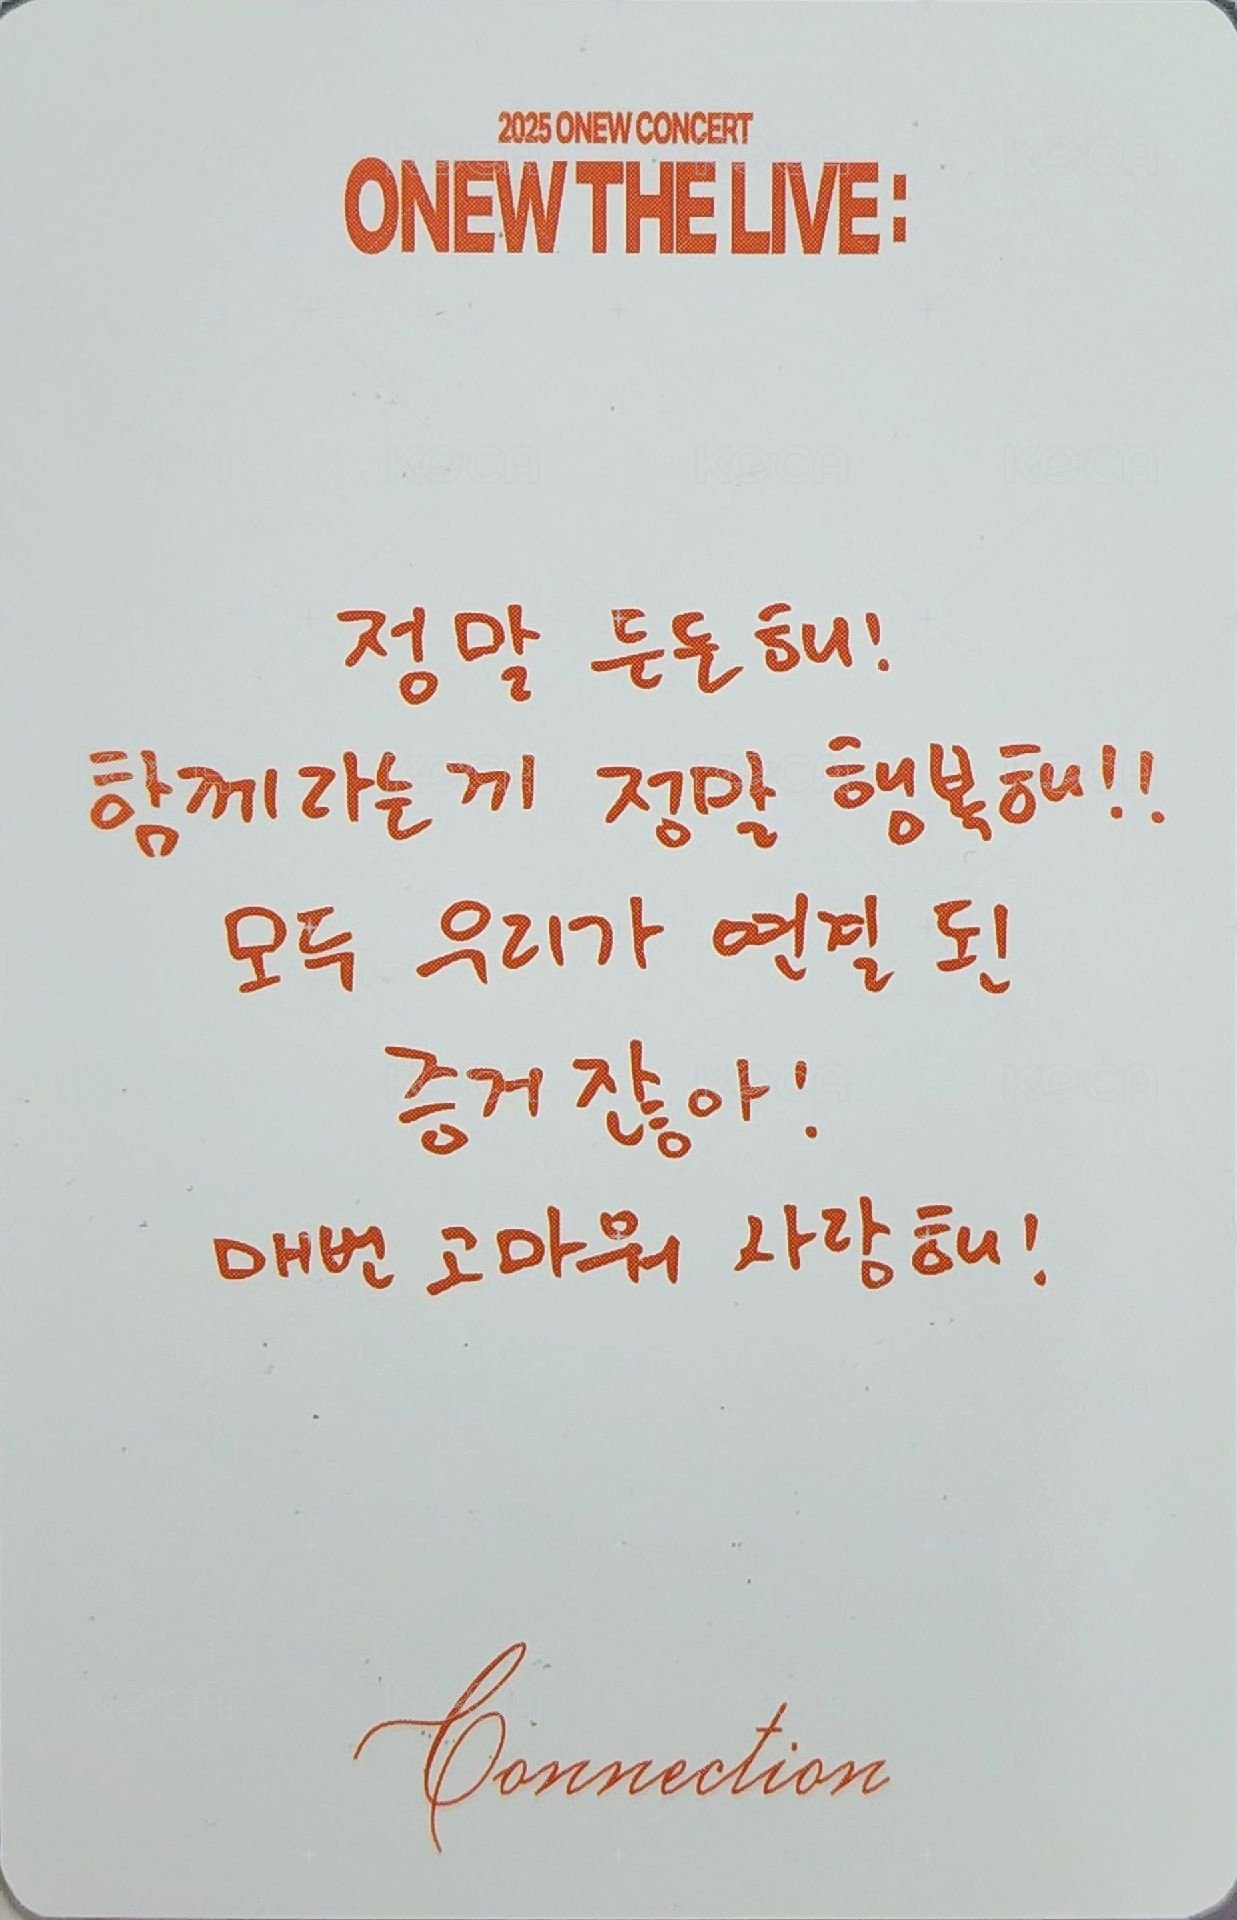 2025 ONEW CONCERT
ONEW THE LIVE :
정말 든든해!
함께라는게 정말 행복해!!
모두 우리가 연결 된
증거잖아!
매번 고마워 사랑해!
Connection
KOCA